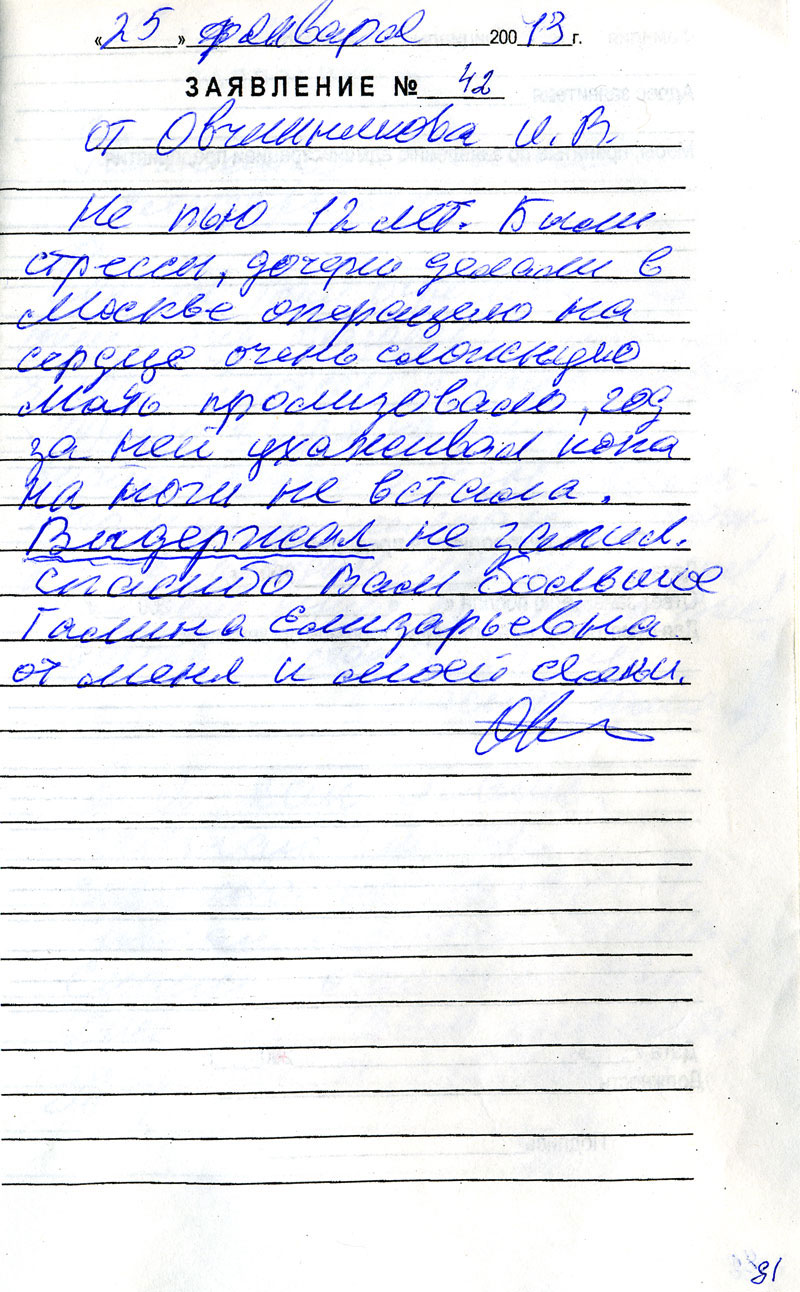 «25» января 200 13 г.
ЗАЯВЛЕНИЕ № 42
от Овчинникова И. В.
Не пью 12 лет. Были
стрессы, дочери делали в
Москве операцию на
сердце очень сложную
Мать пролизовало, год
за ней ухаживал пока
на ноги не встала.
Выдержал не запил.
Спасибо Вам большое
Галина Елизарьевна
от меня и моей семьи.
81